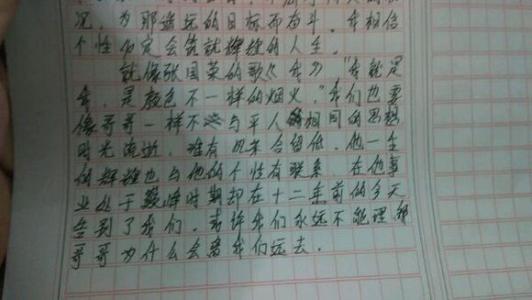 况，为那遥远的目标而奋斗。我相信
个性必定会筑就辉煌的人生。
就像张国荣的歌《我》"我就是
我，是颜色不一样的烟火。"我们也要
像哥哥一样不与平人相同的思想
时光流逝，难有风采会留低。他一生
的辉煌也与他的个性有联系。在他事
业处于巅峰时期却在十二年前的冬天
告别了我们。或许我们永远不能理解
哥哥为什么会离我们远去。